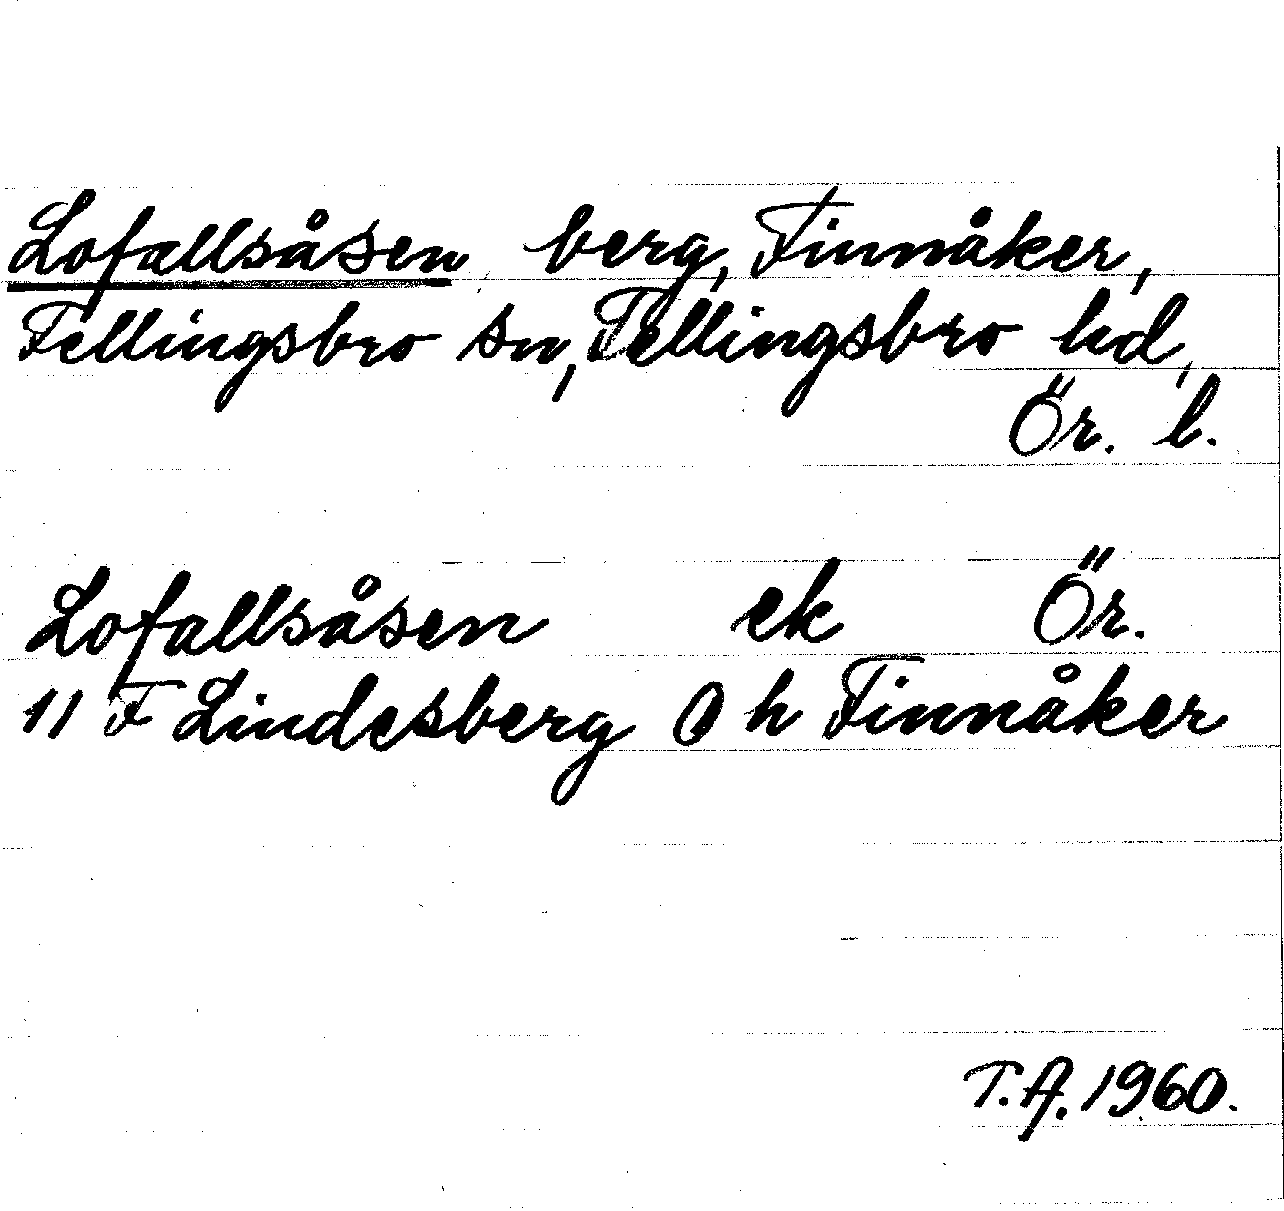 Lofallsåsen, berg, Finnåker,
Fellingsbro sn, Fellingsbro hd,
Ör. l.
Lofallsåsen ek Ör.
11 F Lindesberg O h Finnåker
T.A. 1960.